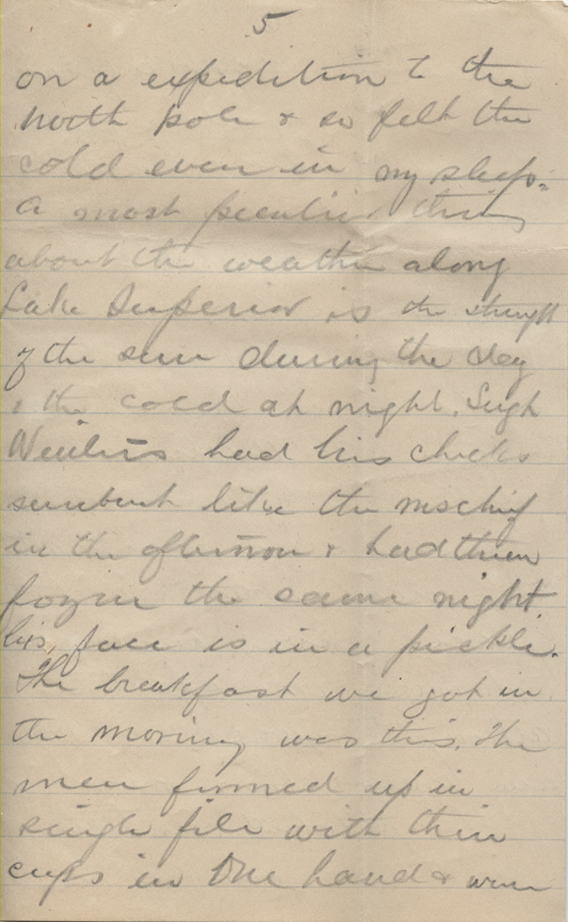 5
on a expedition to the
North pole & so felt the
cold even in my sleep.
A most peculiar thing
about the weather along
Lake Superior is the strength
of the sun during the day
& the cold at night. Sergt
had his cheeks
sunburnt like the mischief
in the afternoon & had them
frozen the same night.
his face is in a pickle.
The breakfast we got in
the morning was this. The
men formed up in
single file with their
cups in one hand & were